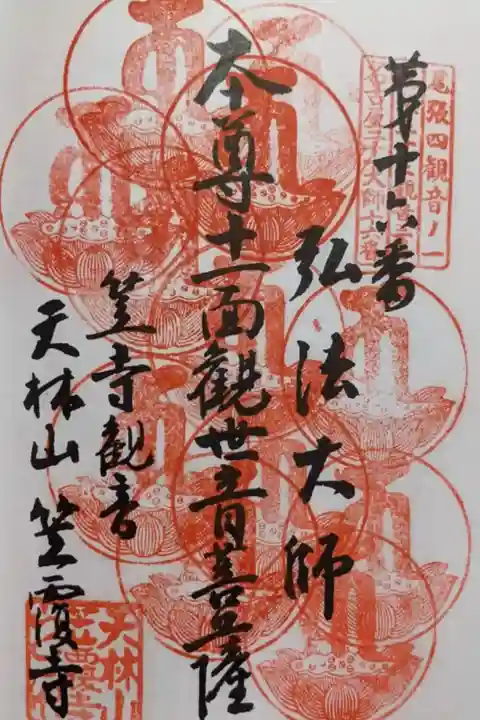 尾張四観音ノ一
第十六番
弘法大師
本尊十一面観世音菩薩
笠寺観音
天林山 笠覆寺